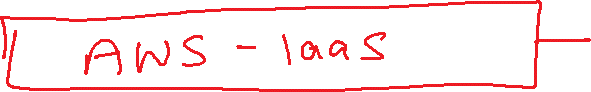 AWS - IaaS